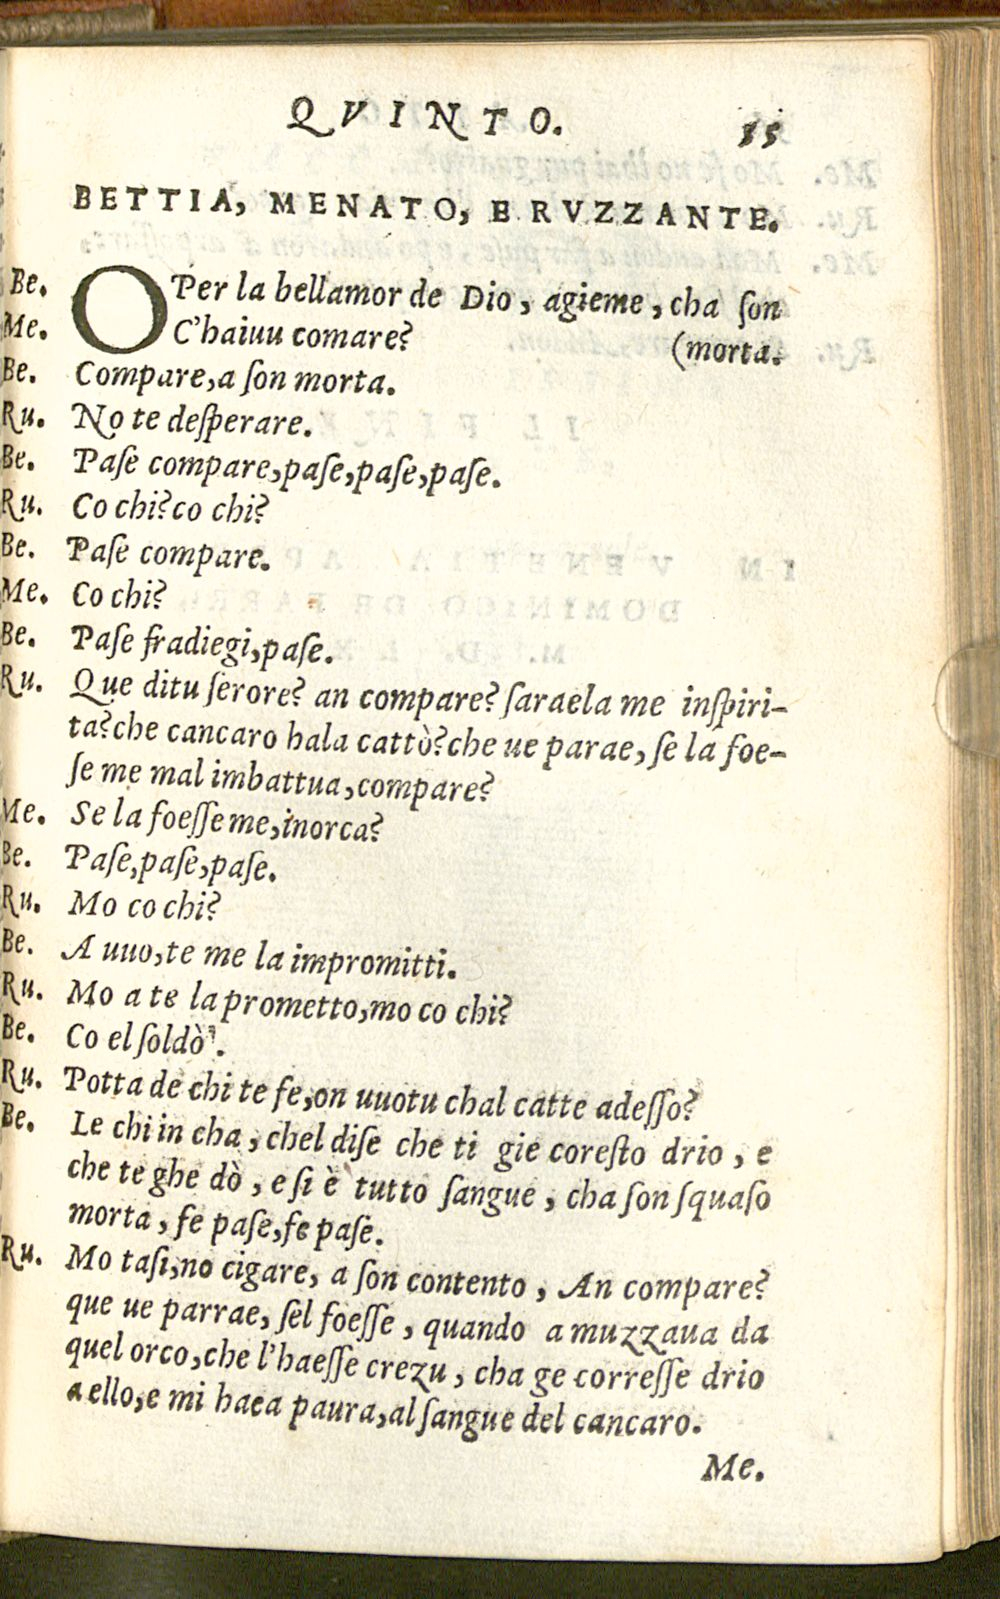 QVINTO. 35
BETTIA, MENATO, E RVZZANTE.
Be. O Per la bellamor de Dio, agieme, cha ſon
Me. C'haiuu comare? (morta.
Be. Compare, a ſon morta.
Ru. No te deſperare.
Be. Paſe compare, paſe, paſe, paſe.
Ru. Co chi? co chi?
Be. Paſe compare.
Me. Co chi?
Be. Paſe fradiegi, paſe.
Ru. Que ditu ſerore? an compare? ſaraela me inſpiri-
ta? che cancaro hala cattò? che ue parae, ſe la foe-
ſe me mal imbattua, compare?
Me. Se la foeſſe me, inorca?
Be. Paſe, paſe, paſe.
Ru. Mo co chi?
Be. A uuo, te me la impromitti.
Ru. Mo a te la prometto, mo co chi?
Be. Co el ſoldò.
Ru. Potta de chi te fe, on uuotu chal catte adeſſo?
Be. Le chi in cha, chel diſe che ti gie coreſto drio, e
che te ghe dò, e ſi è tutto ſangue, cha ſon ſquaſo
morta, fe paſe, fe paſe.
Ru. Mo taſi, no cigare, a ſon contento, An compare?
que ue parrae, ſel foeſſe, quando a muzzaua da
quel orco, che l'haeſſe crezu, cha ge correſſe drio
a ello, e mi haea paura, al ſangue del cancaro.
Me.